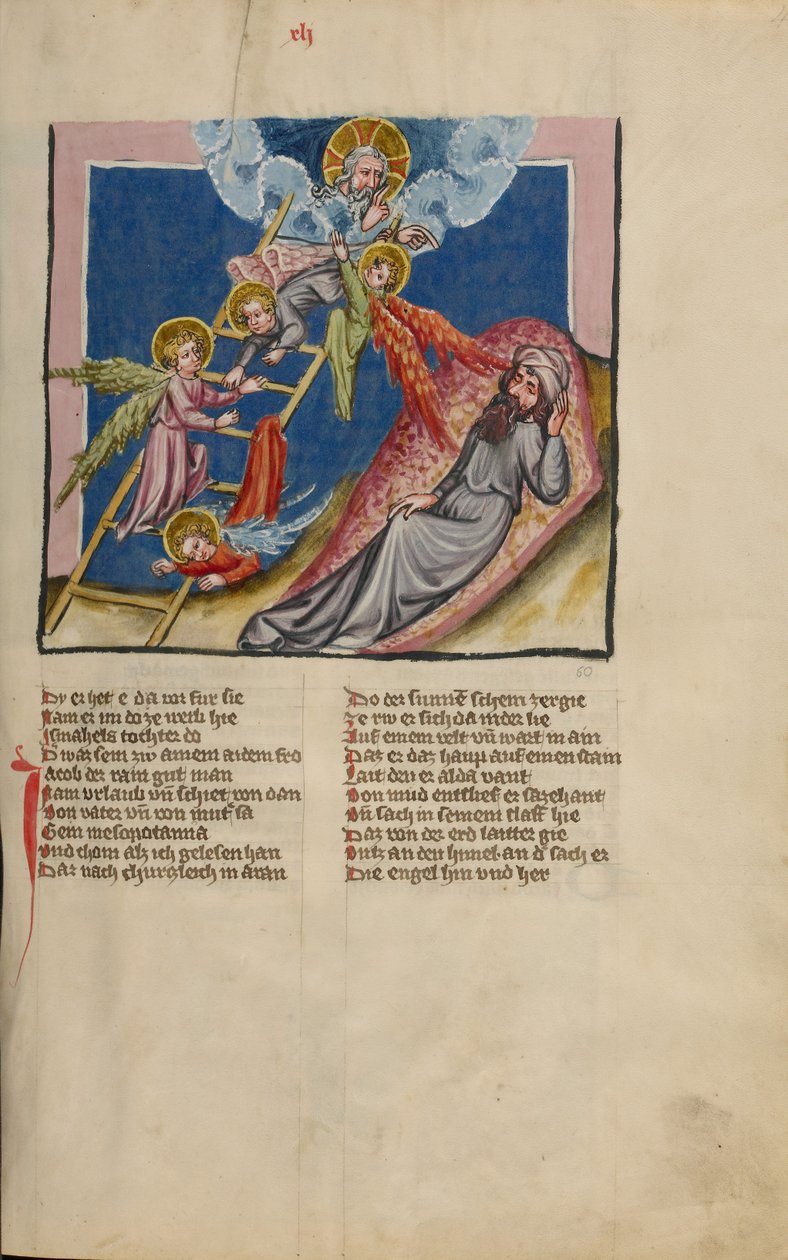 xlj
60
Dy er het e da vor fur sie
Nam er im do ze weib hie
Ismahels tochter do
Dˢ waz sein zw ainem aidem fro
Jacob der rain gut man
Nam vrlaub vn̄ schiet von dan
Von vater vn̄ von mutˢ sa
Gein mesopotanna
Vnd chom alz ich gelesen han
Dar nach churczleich in aran
Do der sunnē schein zergie
Ze rw er sich da nider lie
Auf einem velt vn̄ wart in ain
Daz er daz haup auf einen stain
Lait den er alda vant
Von mud entslief er sazehant
Vn̄ sach in seinem slaff hie
Daz von der erd laitter gie
Vntz an den himel an dˢ sach er
Die engel hin vnd her